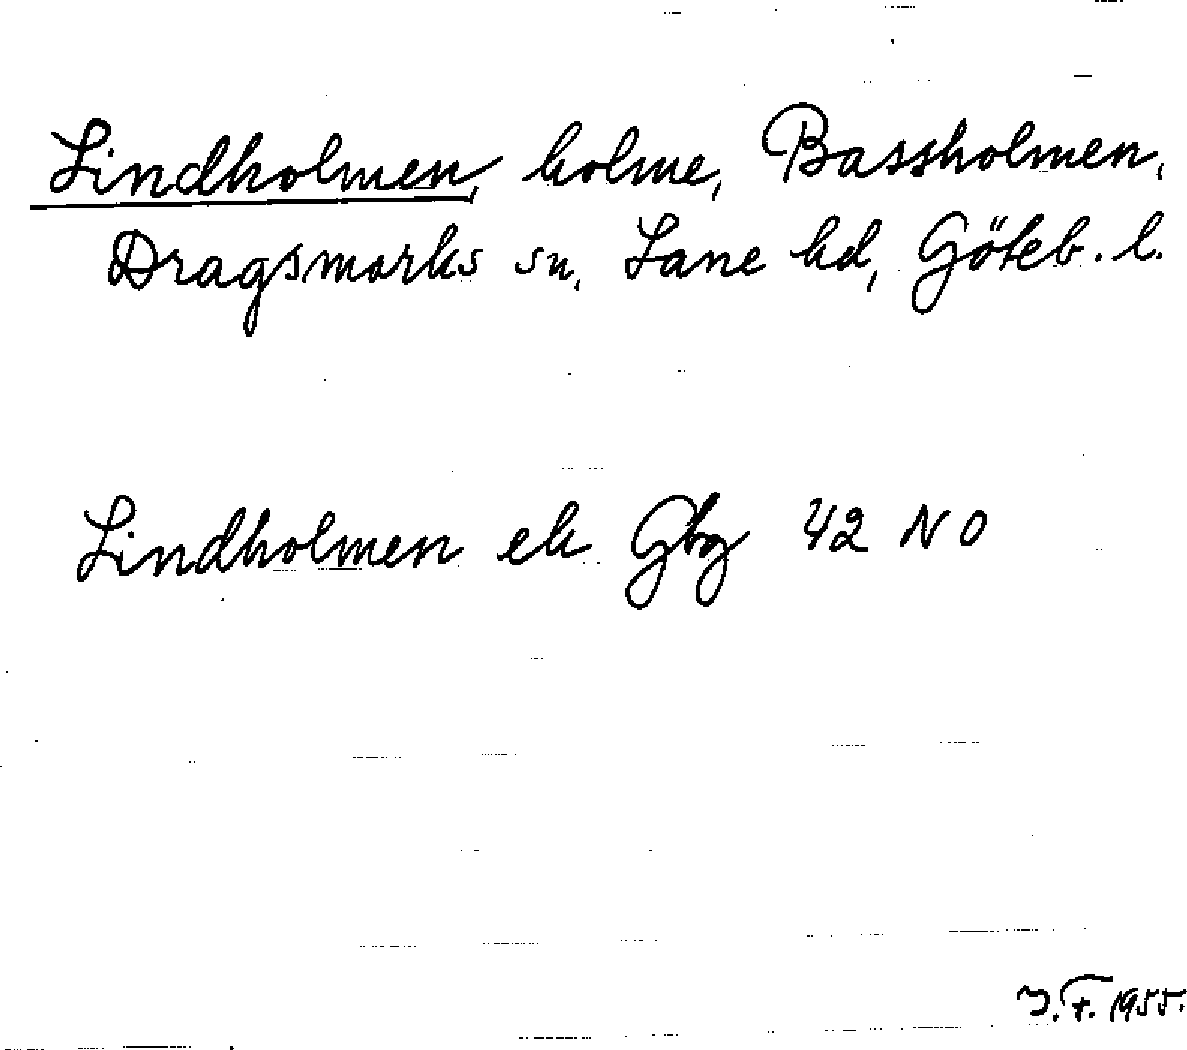 Lindholmen, holme, Bassholmen,
Dragsmarks sn, Lane hd, Göteb. l.
Lindholmen ek Gbg 42 NO
J.F. 1955.